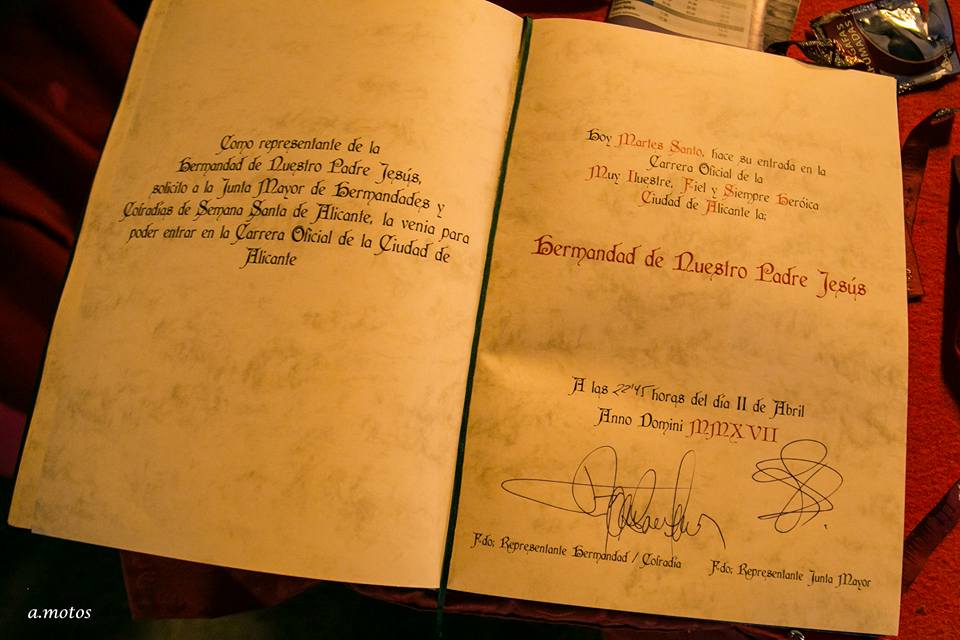 Como representante de la
Hermandad de Nuestro Padre Jesús,
solicito a la Junta Mayor de Hermandades y
Cofradías de Semana Santa de Alicante, la venia para
poder entrar en la Carrera Oficial de la Ciudad de
Alicante
Hoy Martes Santo, hace su entrada en la
Carrera Oficial de la
Muy Iluestre, Fiel y Siempre Heróica
Ciudad de Alicante la:
Hermandad de Nuestro Padre Jesús
A las 22'45 horas del día II de Abril
Anno Domini MMXVII
Fdo: Representante Hermandad / Cofradía
Fdo: Representante Junta Mayor
a.motos